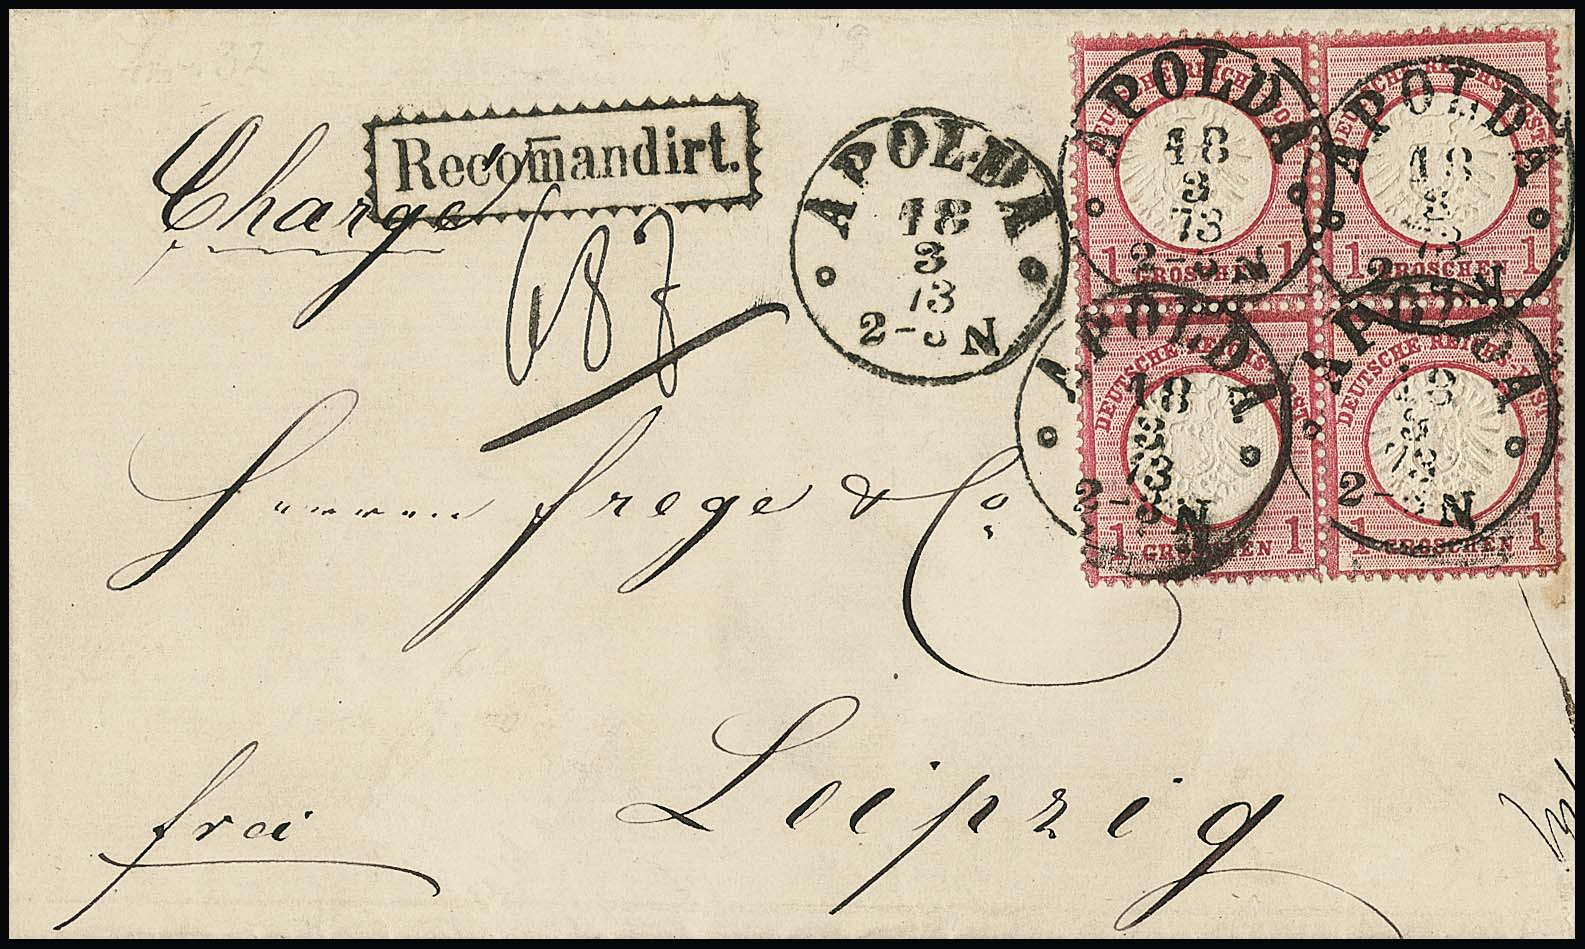 Recom̅andirt.
Chargé
687
APOLDA
18
3
73
2-3 N
APOLDA
18
3
73
2-3 N
APOLDA
18
3
73
2-3 N
APOLDA
18
3
73
2-3 N
APOLDA
18
2-3 N
DEUTSCHE REICHS-POST
1 GROSCHEN 1
DEUTSCHE REICHS-POST
1 GROSCHEN 1
DEUTSCHE REICHS-POST
1 GROSCHEN 1
DEUTSCHE REICHS-POST
1 GROSCHEN 1
Herren Frege & Co.
Leipzig
frei